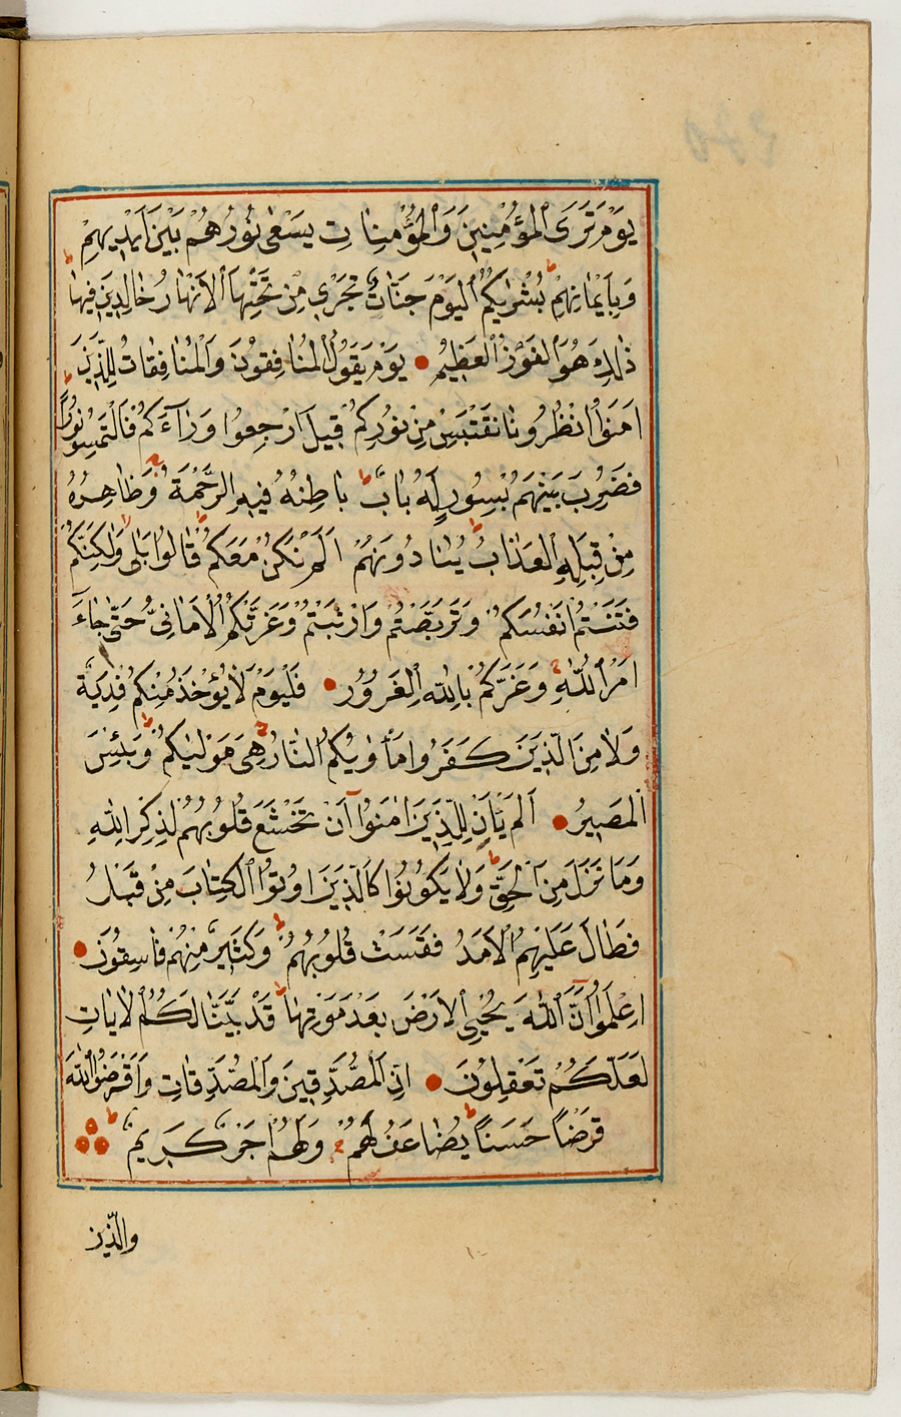 يَوْمَ تَرَى ٱلْمُؤْمِنِينَ وَٱلْمُؤْمِنَاتِ يَسْعٰى نُورُهُمْ بَيْنَ اَيْدِيهِمْ
وَبِاَيْمَانِهِمْ بُشْرٰيكُمُ ٱلْيَوْمَ جَنَّاتٌ تَجْرٖي مِنْ تَحْتِهَا ٱلْاَنْهَارُ خَالِدِينَ فِيهَا
ذٰلِكَ هُوَ ٱلْفَوْزُ ٱلْعَظِيمُ يَوْمَ يَقُولُ ٱلْمُنَافِقُونَ وَٱلْمُنَافِقَاتُ لِلَّذِينَ
اٰمَنُوا ٱنْظُرُونَا نَقْتَبِسْ مِنْ نُورِكُمْ قِيلَ ٱرْجِعُوا وَرَآءَكُمْ فَٱلْتَمِسُوا نُورًا
فَضُرِبَ بَيْنَهُمْ بِسُورٍ لَهُ بَابٌ بَاطِنُهُ فِيهِ ٱلرَّحْمَةُ وَظَاهِرُهُ
مِنْ قِبَلِهِ ٱلْعَذَابُ يُنَادُونَهُمْ اَلَمْ نَكُنْ مَعَكُمْ قَالُوا بَلٰى وَلٰكِنَّكُمْ
فَتَنْتُمْ اَنْفُسَكُمْ وَتَرَبَّصْتُمْ وَٱرْتَبْتُمْ وَغَرَّتْكُمُ ٱلْاَمَانِيُّ حَتّٰى جَآءَ
اَمْرُ ٱللّٰهِ وَغَرَّكُمْ بِٱللّٰهِ ٱلْغَرُورُ فَلْيَوْمَ لَا يُؤْخَذُ مِنْكُمْ فِدْيَةٌ
وَلَا مِنَ ٱلَّذِينَ كَفَرُوا مَأْوٰيكُمُ ٱلنَّارُ هِيَ مَوْلٰيكُمْ وَبِئْسَ
ٱلْمَصِيرُ اَلَمْ يَاْنِ لِلَّذِينَ اٰمَنُوٓا اَنْ تَخْشَعَ قُلُوبُهُمْ لِذِكْرِ ٱللّٰهِ
وَمَا نَزَلَ مِنَ ٱلْحَقِّ وَلَا يَكُونُوا كَٱلَّذِينَ اُوتُوا ٱلْكِتَابَ مِنْ قَبْلُ
فَطَالَ عَلَيْهِمُ ٱلْاَمَدُ فَقَسَتْ قُلُوبُهُمْ وَكَثِيرٌ مِنْهُمْ فَاسِقُونَ
اِعْلَمُوٓا اَنَّ ٱللّٰهَ يُحْيِي ٱلْاَرْضَ بَعْدَ مَوْتِهَا قَدْ بَيَّنَّا لَكُمُ ٱلْاٰيَاتِ
لَعَلَّكُمْ تَعْقِلُونَ اِنَّ ٱلْمُصَّدِّقِينَ وَٱلْمُصَّدِّقَاتِ وَاَقْرَضُوا ٱللّٰهَ
قَرْضًا حَسَنًا يُضَاعَفُ لَهُمْ وَلَهُمْ اَجْرٌ كَرِيمٌ
وَالَّذِينَ